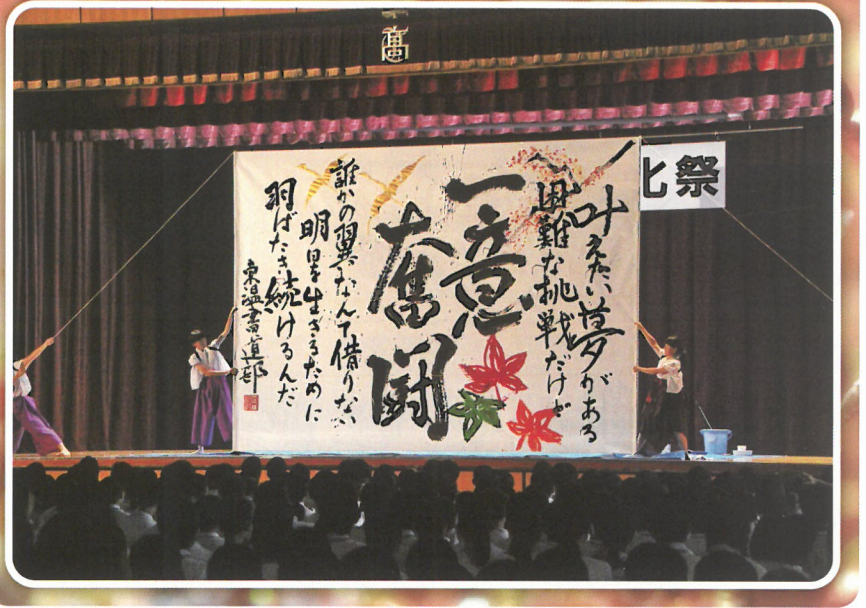 高
化祭
叶えたい夢がある
困難な挑戦だけど
一意
奮闘
誰かの翼なんて借りない
明日を生きるために
羽ばたき続けるんだ
東温書道部